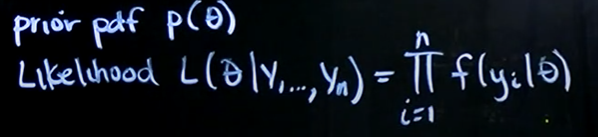 prior pdf p(θ)
Likelihood L(θ|Y₁,...,Yₙ) = ∏ⁿᵢ₌₁ f(yᵢ|θ)